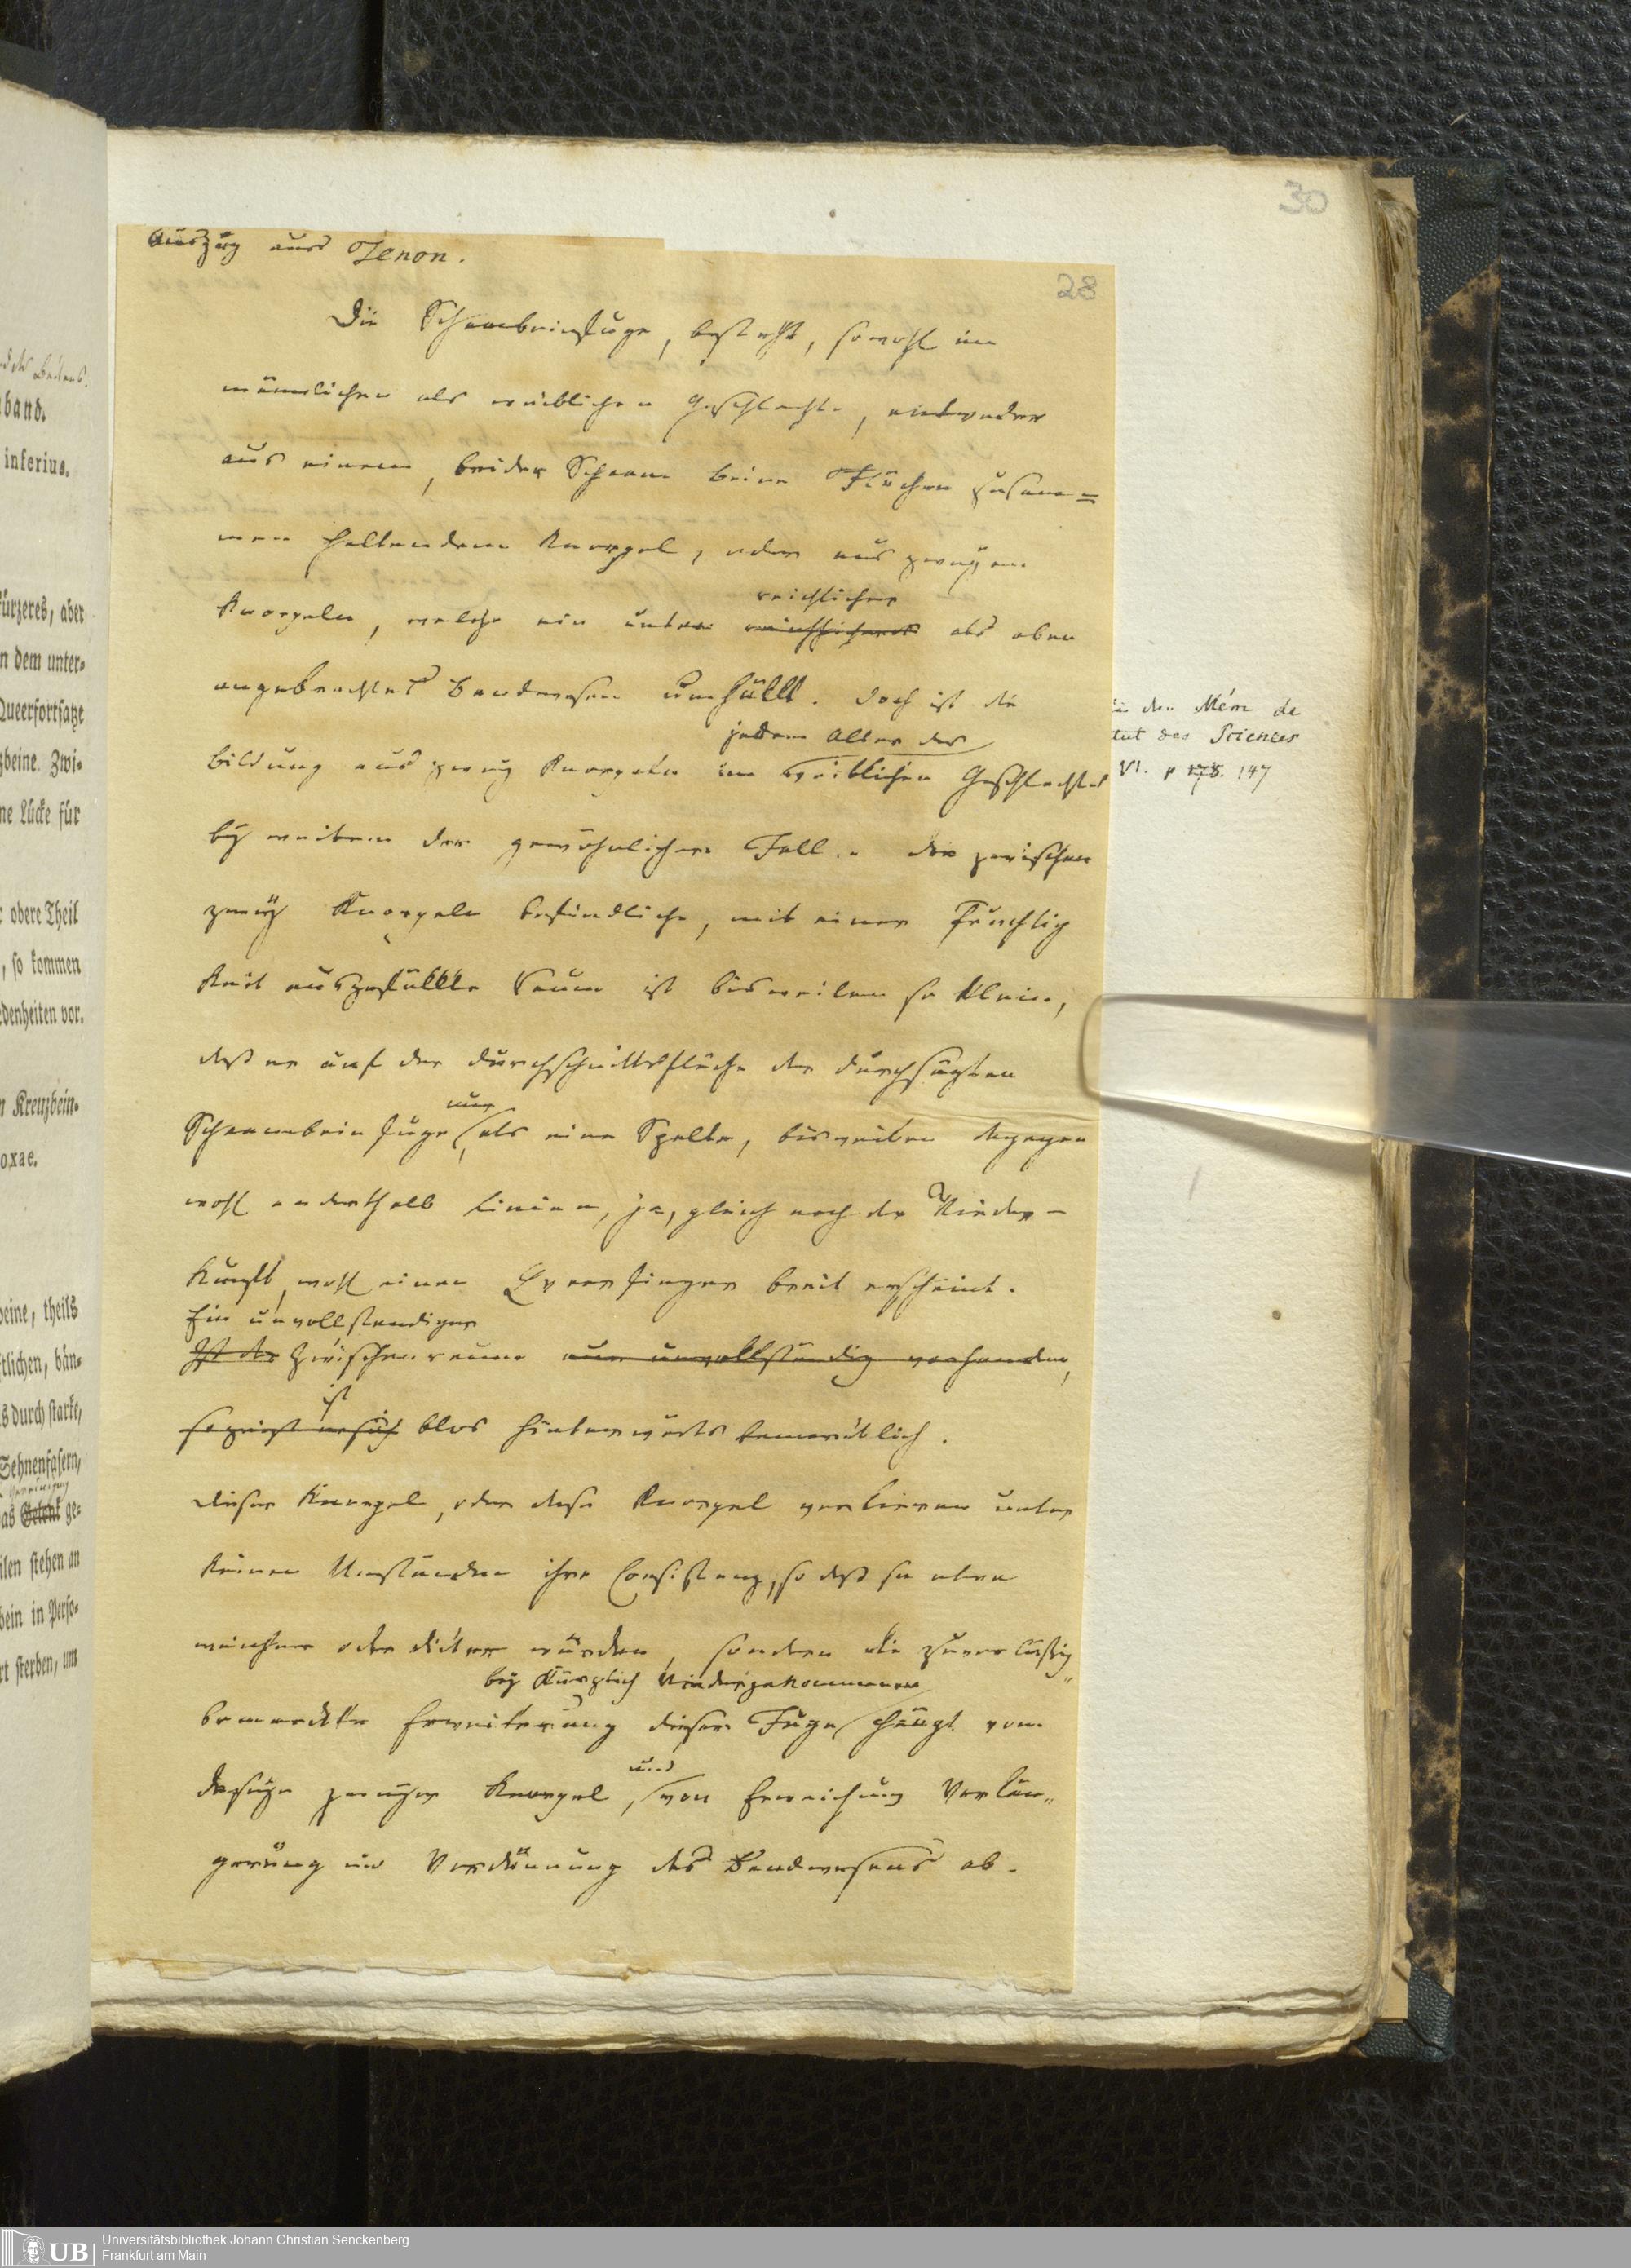 30
28
Auszug aus Tenon.
Die Schambeinfuge, besteht, sowohl im
männlichen als weiblichen Geschlechte, entweder
aus einem, beider Schaam beine Flächen zusam=
men haltendem Knorpel, oder aus zweyen
reichlicher
Knorpeln, welche ein unten als oben
angebrachtes Bandwesen umhüllt. Doch ist die
jedem Alter des
Bildung aus zwey Knorpeln im weiblichen Geschlechtes
bey weitem der gewöhnlichere Fall. der zwischen
zwey Knorpeln befindliche, mit einer Feuchtig
keit ausgefüllte Raum ist bisweilen so klein,
daß er auf der Durchschnittsfläche der durchsägten
nur
Schaambein fuge, als eine Spalte, bisweilen dagegen
wohl anderthalb Linien, ja, gleich nach der Nieder-
kunft, wohl einen Queerfinger breit erscheint.
Ein unvollständiger
Ist der Zwischenraum nur unvollständig vorhanden,
ist
so zeigt er sich blos hinterwärts bemerklich.
Dieser Knorpel, oder diese Knorpel verlieren unter
keinen Umständen ihre Consistenz, so daß sie etwa
weicher oder dicker würden, sondern die zuverlässig
bey kürzlich Niedergekommenen
bemerkte Erweiterung dieser Fuge hängt vom
Daseyn zweyer Knorpel,
und
von Erweichung Verlän„
gerung und Verdünnung des Bandwesens ab.
in den Mém de
tut des Sciences
VI. p 178. 147
band.
inferius.
kürzeres, aber
n dem unter-
Queerfortsatze
zbeine. Zwi-
ne Lücke für
obere Theil
, so kommen
denheiten vor.
n Kreuzbein-
oxae.
beine, theils
tlichen, bän-
s durch starke,
Sehnenfasern,
as Gelenk ge-
ilen stehen an
bein in Perso-
rt sterben, um
UB
Universitätsbibliothek Johann Christian Senckenberg
Frankfurt am Main